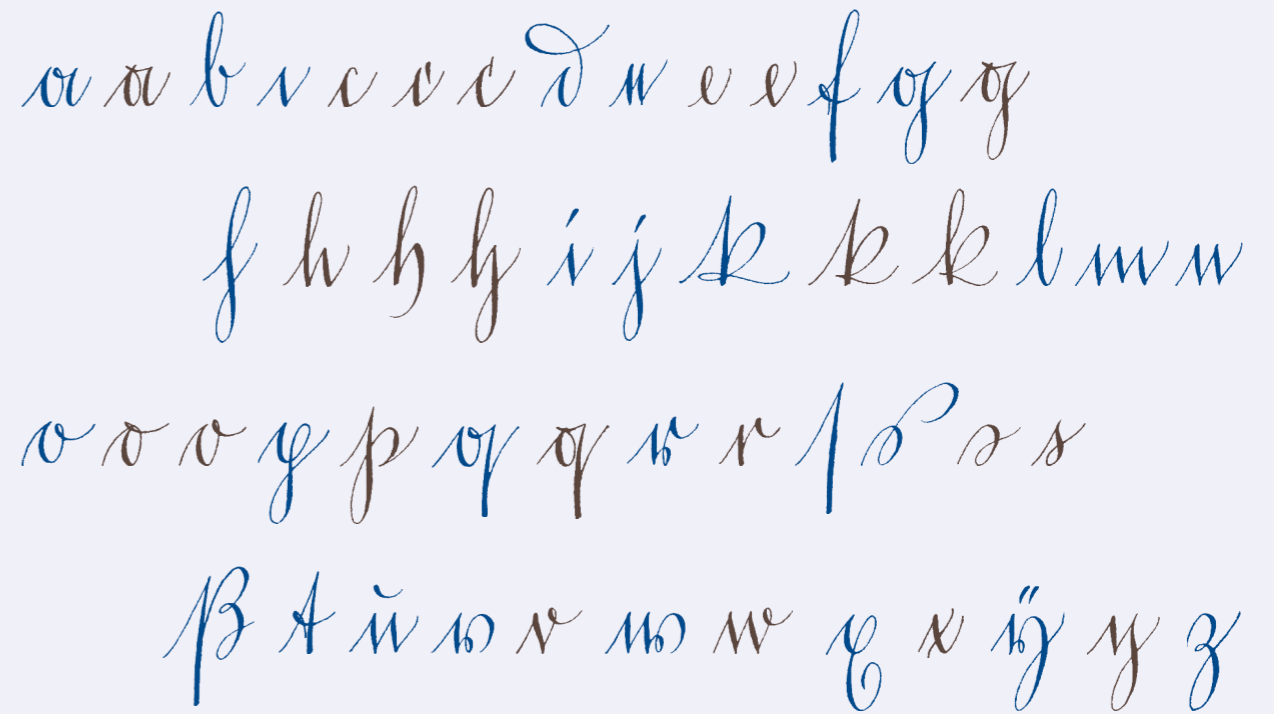 a a b c c c c d e e e f g g
h h h h i j k k k l m n
o o o p p q q r r ſ s s s
ß t u v v w w x x ÿ y z